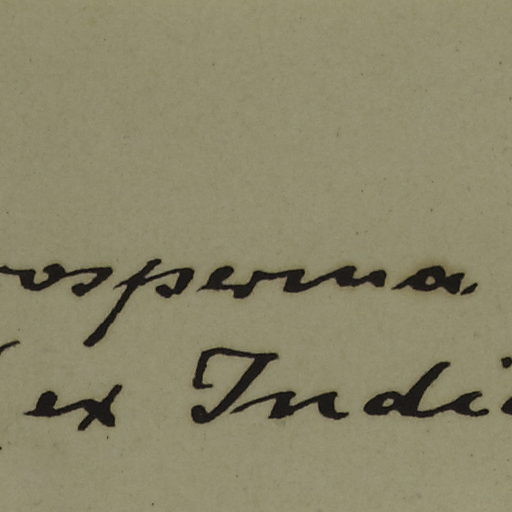 rosperma
ex Indi